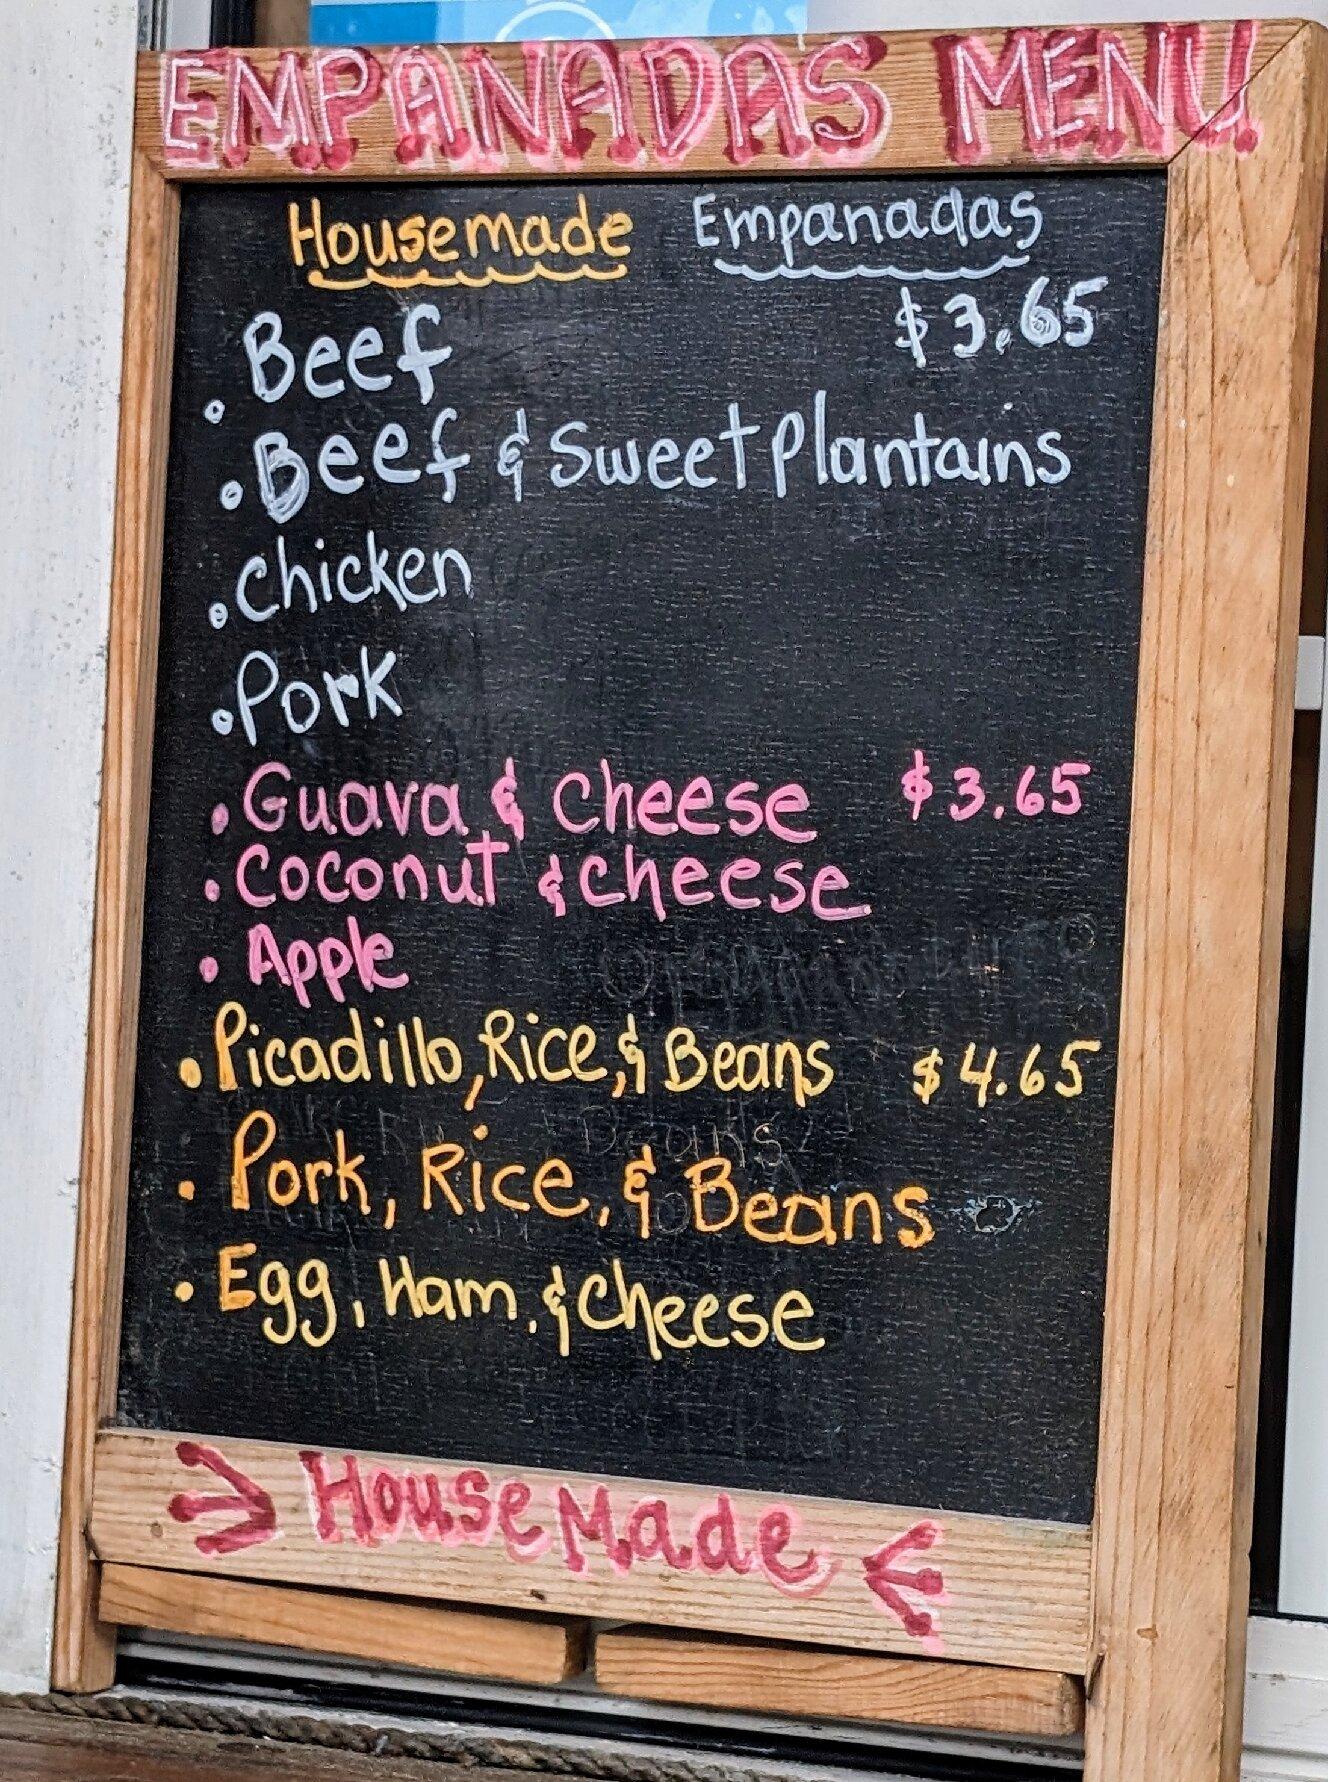 EMPANADAS MENU
Housemade Empanadas
• Beef $3.65
• Beef & Sweet Plantains
• Chicken
• Pork
• Guava & Cheese $3.65
• Coconut & Cheese
• Apple
• Picadillo, Rice, & Beans $4.65
• Pork, Rice, & Beans
• Egg, Ham, & Cheese
House Made